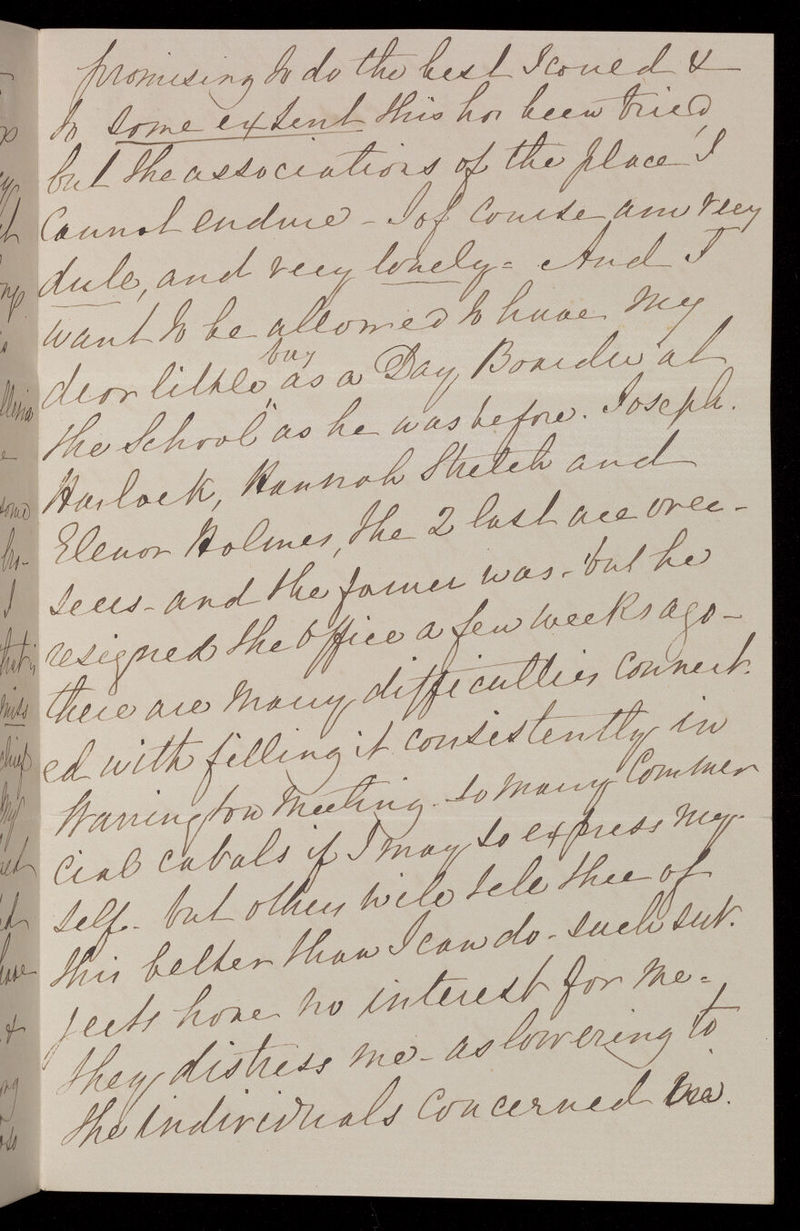 promising to do the best I could &
to some extent this has been tried,
but the associations of the place I
cannot endure - I of course am very
dull, and very lonely = And I
want to be allowed to have my
dear little boy as a "Day Boarder at
the School" as he was before. Joseph.
Harlock, Hannah Stretch and
Elenor Holmes, the 2 last are over-
seers - and the former was - but he
resigned the office a few weeks ago -
there are many difficulties connect.
ed with filling it consistently in
Warrington Meeting. so many Commer
cial cabals if I may so express my-
self - but others will tell thee of
this better than I can do - such sub.
jects have no interest for me =
they distress me - as lowering to
the individuals concerned